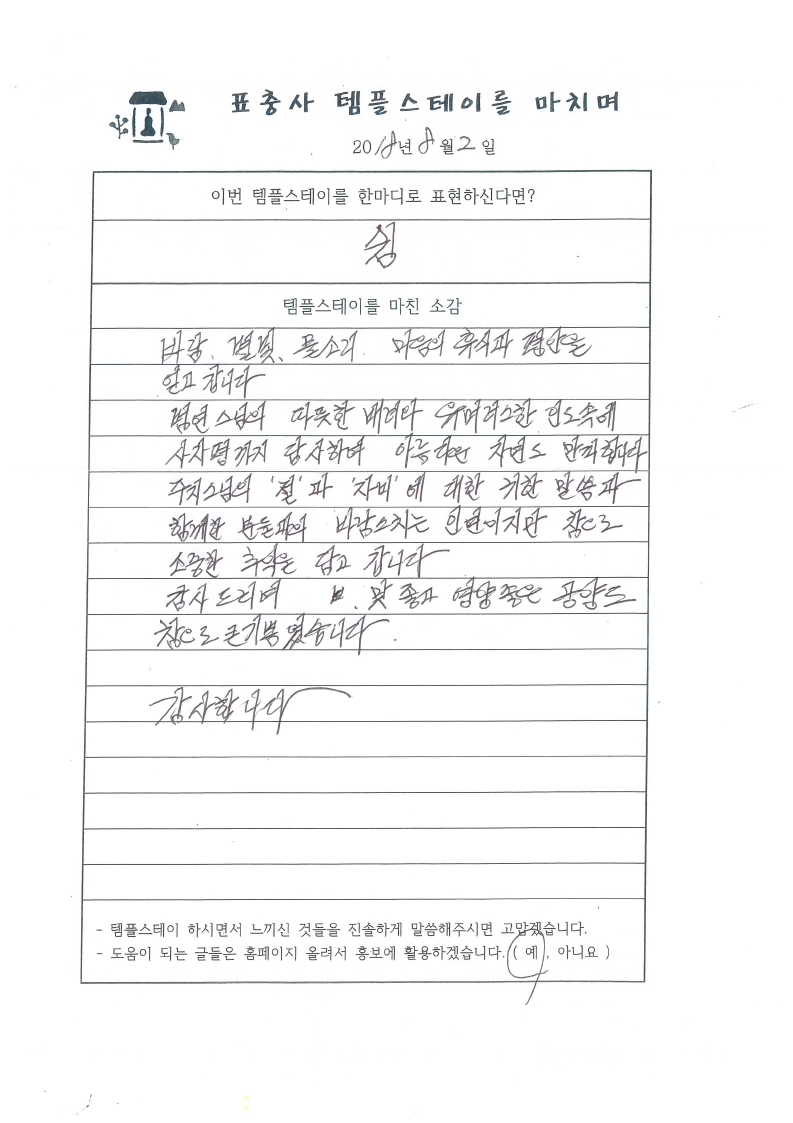 표충사 템플스테이를 마치며
2018년 8월 2일
이번 템플스테이를 한마디로 표현하신다면?
쉼
템플스테이를 마친 소감
바람, 별빛, 물소리. 마음의 휴식과 평안을
얻고 갑니다
스님의 따뜻한 배려와 유머러스한 인도속에
사자평까지 답사하며 아름다운 자연도 만끽합니다
주지스님의 '절'과 '자비'에 대한 귀한 말씀과
함께한 분들과의 바람스치는 인연이지만 참으로
소중한 추억을 담고 갑니다
감사드리며 맛 좋고 영양 좋은 공양도
참으로 큰기쁨 였습니다.
감사합니다
- 템플스테이 하시면서 느끼신 것들을 진솔하게 말씀해주시면 고맙겠습니다.
- 도움이 되는 글들은 홈페이지 올려서 홍보에 활용하겠습니다. ( 예 , 아니요 )